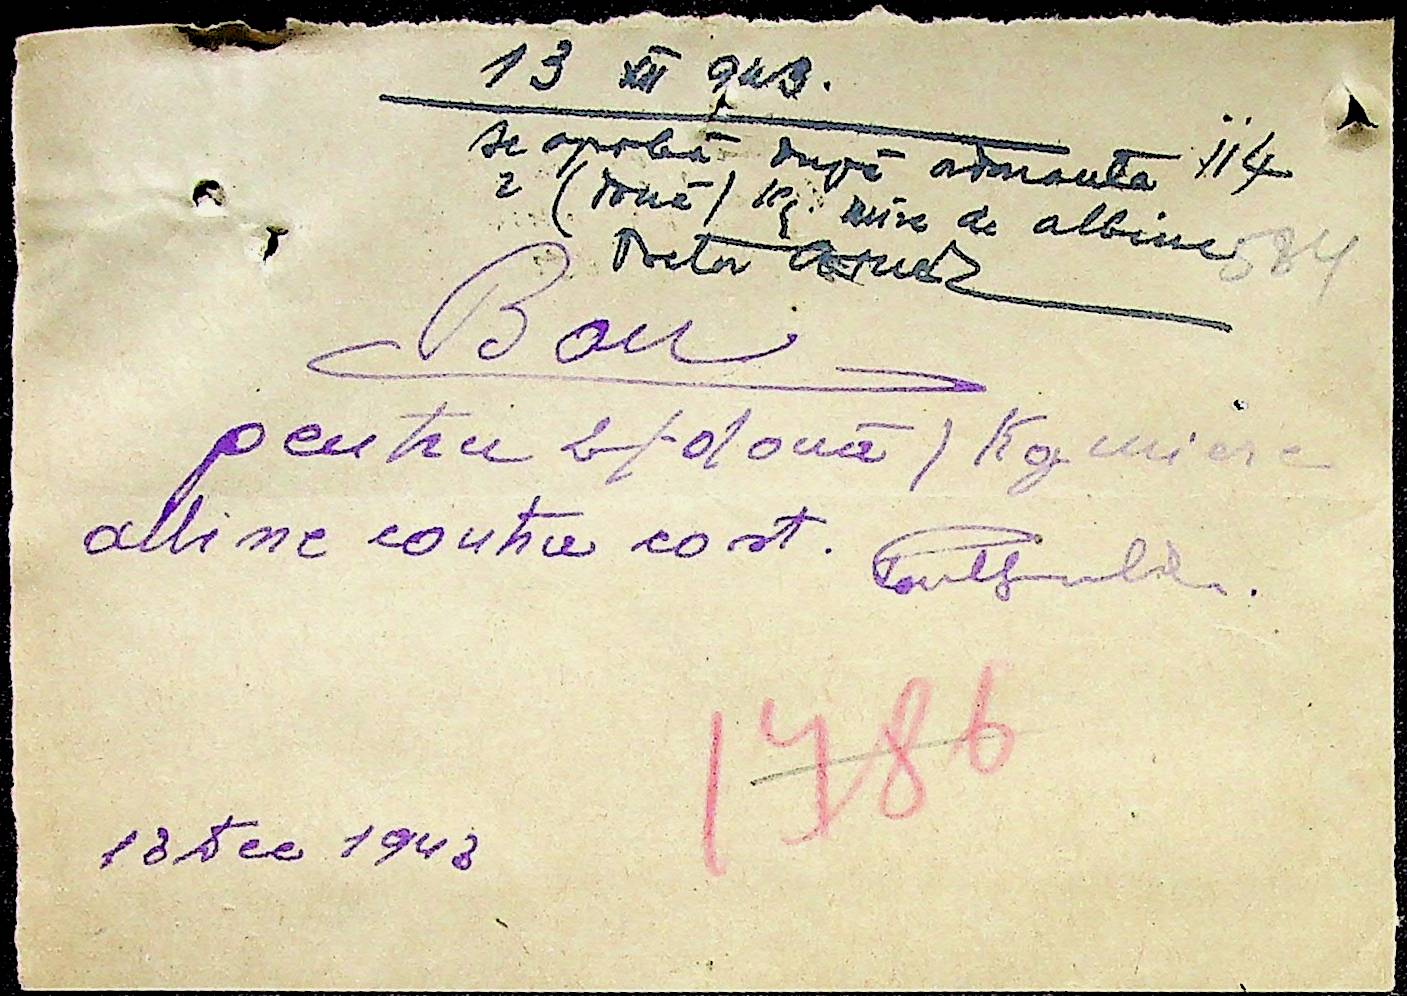 13 XII 943.
Se aprobă după ordonanta 114
2 (două) Kg. miere de albine
584
Doctor
Bon
pentru 2 (două) Kg miere
albine contra cost.
1786
13 Dec 1943